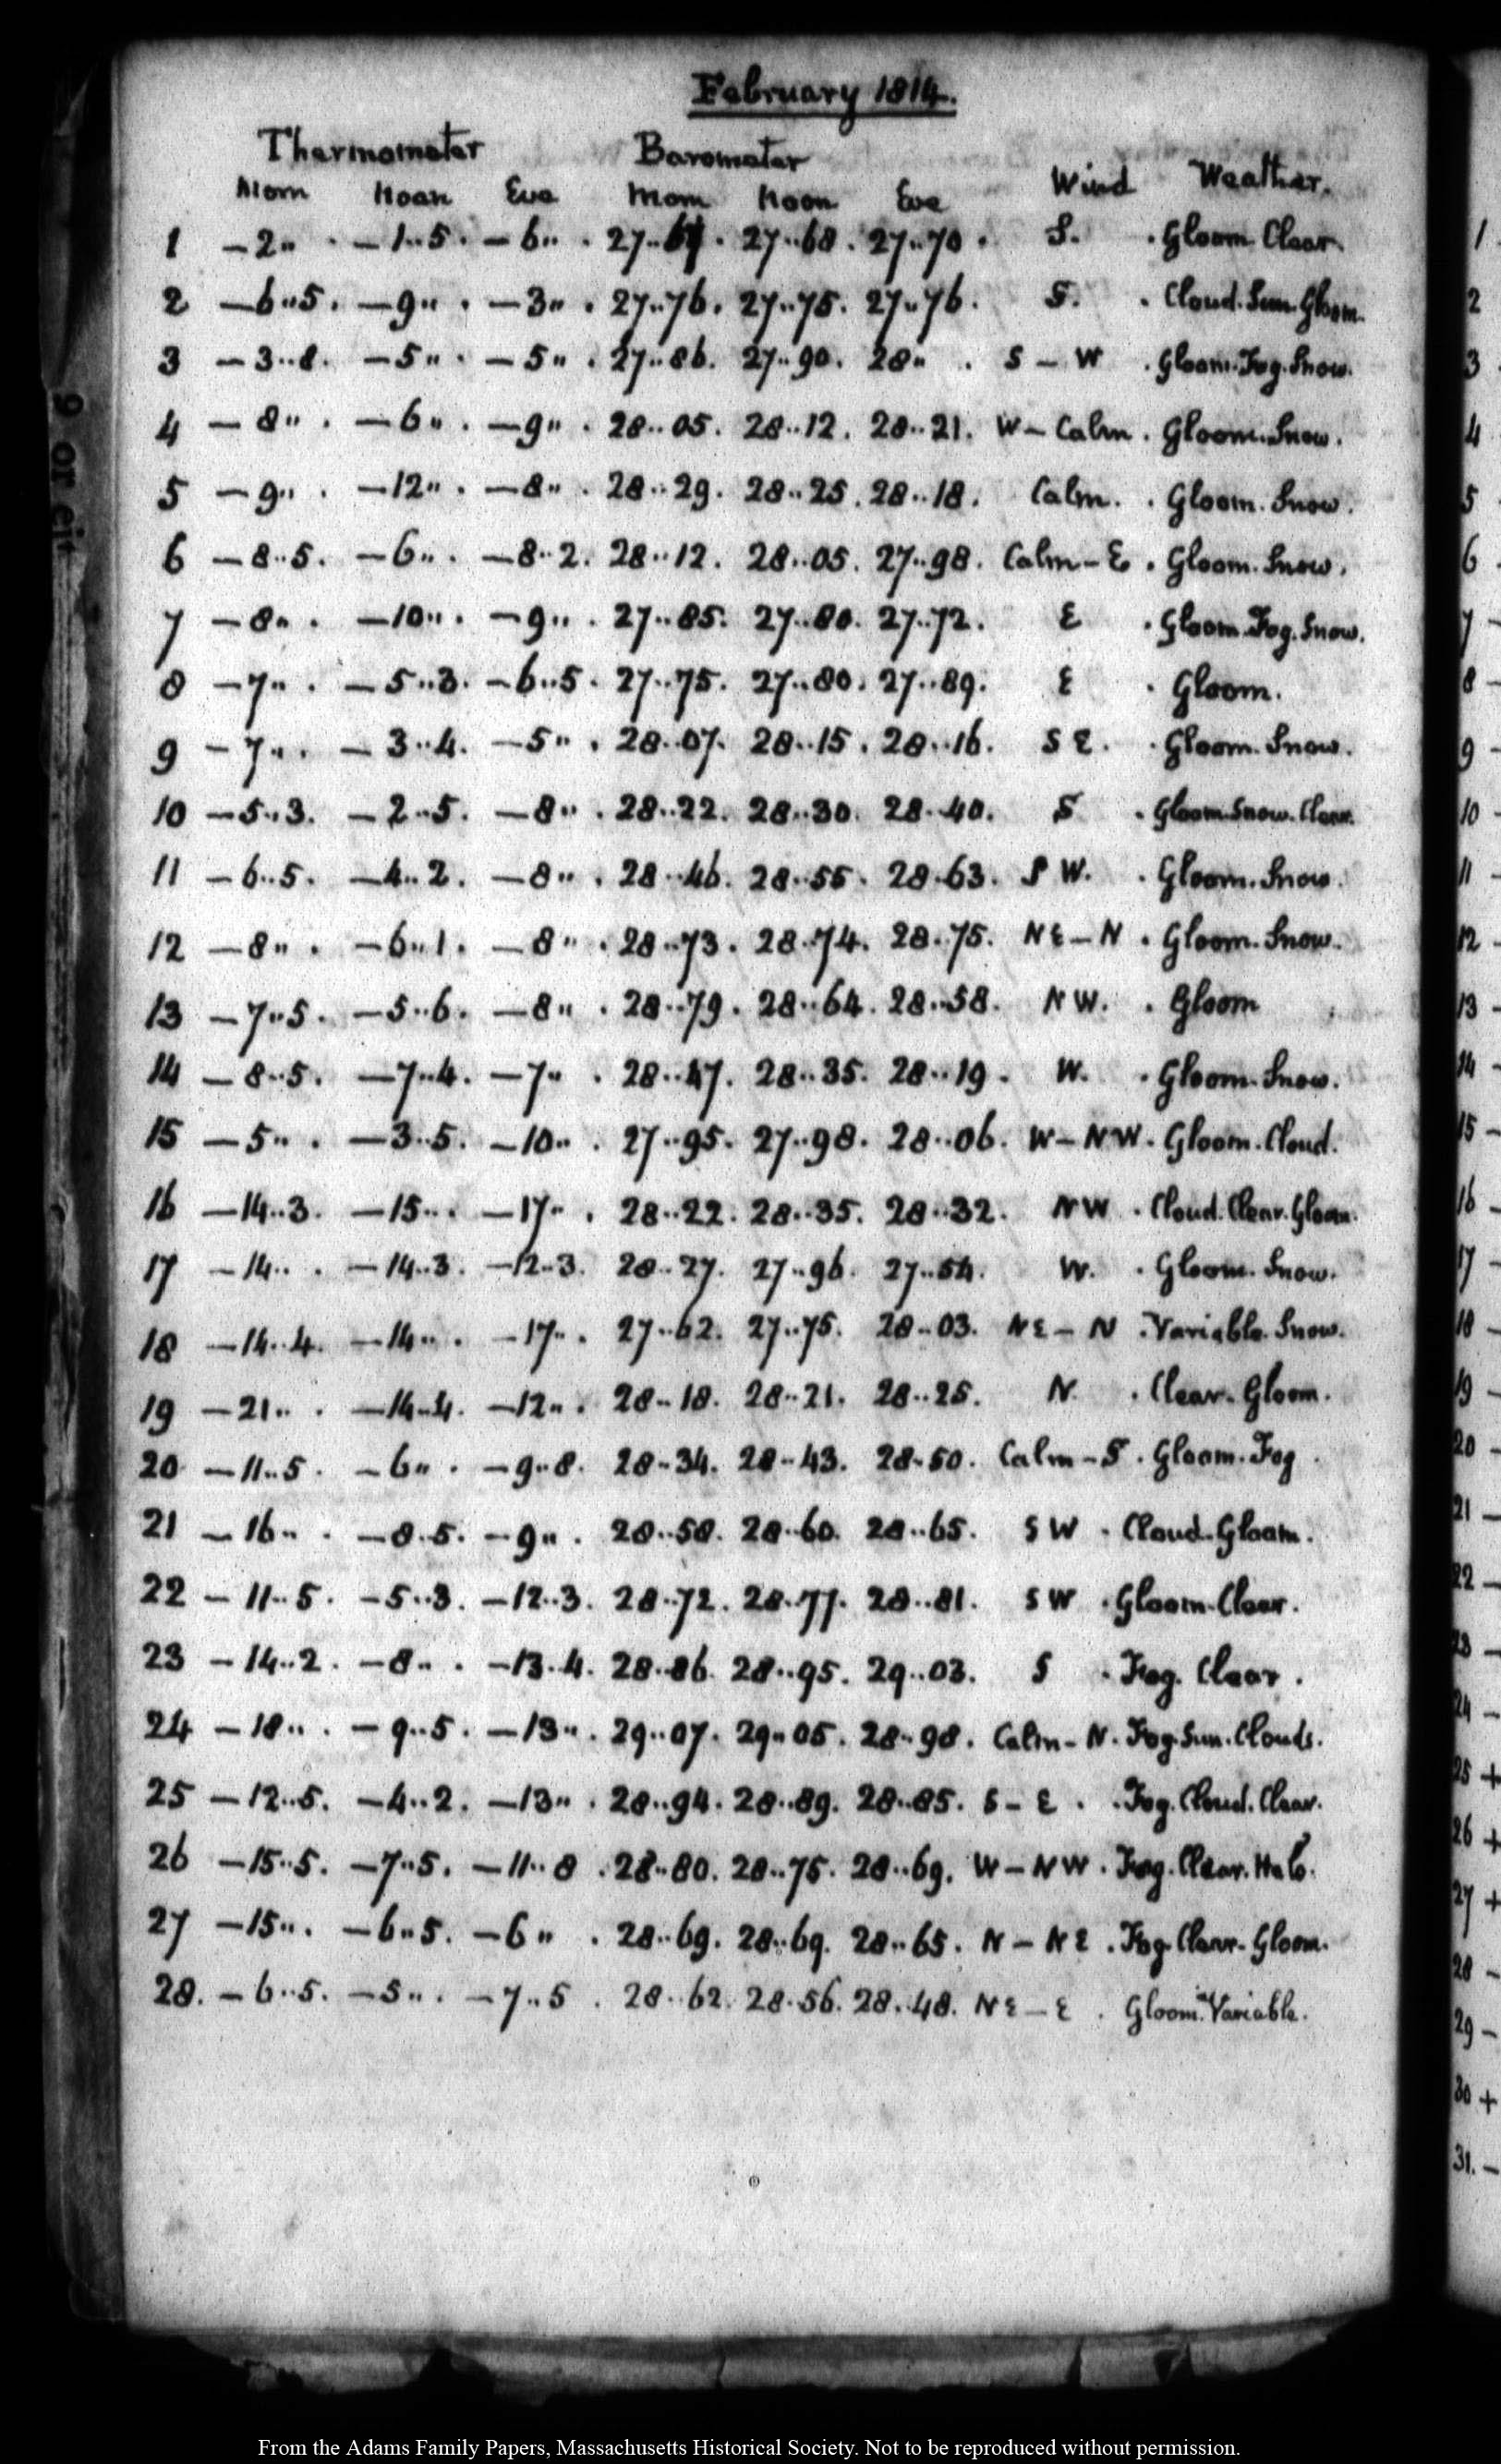 February 1814.
Thermometer Barometer
Morn Noon Eve Morn Noon Eve Wind Weather.
1 —2.. . —1..5. —6.. . 27..67. 27..68. 27..70. S. . Gloom. Clear.
2 —6..5. —9.. . —3.. . 27..76. 27..75. 27..76. S. . Cloud. Sun. Gloom.
3 —3..8. —5.. . —5.. . 27..86. 27..90. 28.. . S — W . Gloom. Fog. Snow.
4 —8.. . —6.. . —9.. . 28..05. 28..12. 28..21. W — Calm . Gloom. Snow.
5 —9.. . —12.. . —8.. . 28..29. 28..25. 28..18. Calm. . Gloom. Snow.
6 —8..5. —6.. . —8..2. 28..12. 28..05. 27..98. Calm — E . Gloom. Snow.
7 —8.. . —10.. . —9.. . 27..85. 27..80. 27..72. E . Gloom. Fog. Snow.
8 —7.. . —5..3. —6..5. 27..75. 27..80. 27..89. E . Gloom.
9 —7.. . —3..4. —5.. . 28..07. 28..15. 28..16. S E. . Gloom. Snow.
10 —5..3. —2..5. —8.. . 28..22. 28..30. 28..40. S . Gloom. Snow. Clear.
11 —6..5. —4..2. —8.. . 28..46. 28..55. 28..63. S W. . Gloom. Snow.
12 —8.. . —6..1. —8.. . 28..73. 28..74. 28..75. NE — N . Gloom. Snow.
13 —7..5. —5..6. —8.. . 28..79. 28..64. 28..58. NW. . Gloom
14 —8..5. —7..4. —7.. . 28..47. 28..35. 28..19. W. . Gloom. Snow.
15 —5.. . —3..5. —10.. . 27..95. 27..98. 28..06. W — NW. Gloom. Cloud.
16 —14..3. —15.. . —17.. . 28..22. 28..35. 28..32. NW . Cloud. Clear. Gloom.
17 —14.. . —14..3. —12..3. 28..27. 27..96. 27..54. W. . Gloom. Snow.
18 —14..4. —14.. . —17.. . 27..62. 27..75. 28..03. NE — N . Variable. Snow.
19 —21.. . —14..4. —12.. . 28..18. 28..21. 28..25. N. . Clear. Gloom.
20 —11..5. —6.. . —9..8. 28..34. 28..43. 28..50. Calm — S . Gloom. Fog .
21 —16.. . —8..5. —9.. . 28..58. 28..60. 28..65. S W . Cloud. Gloom.
22 —11..5. —5..3. —12..3. 28..72. 28..77. 28..81. S W . Gloom. Clear.
23 —14..2. —8.. . —13..4. 28..86. 28..95. 29..03. S . Fog. Clear.
24 —18.. . —9..5. —13.. . 29..07. 29..05. 28..98. Calm — N. Fog. Sun. Clouds.
25 —12..5. —4..2. —13.. . 28..94. 28..89. 28..85. S — E . . Fog. Cloud. Clear.
26 —15..5. —7..5. —11..8 . 28..80. 28..75. 28..69. W — NW . Fog. Clear. Halo.
27 —15.. . —6..5. —6.. . 28..69. 28..69. 28..65. N — NE . Fog. Clear. Gloom.
28. —6..5. —5.. . —7..5 . 28..62. 28..56. 28..48. NE — E . Gloom. Variable.
From the Adams Family Papers, Massachusetts Historical Society. Not to be reproduced without permission.